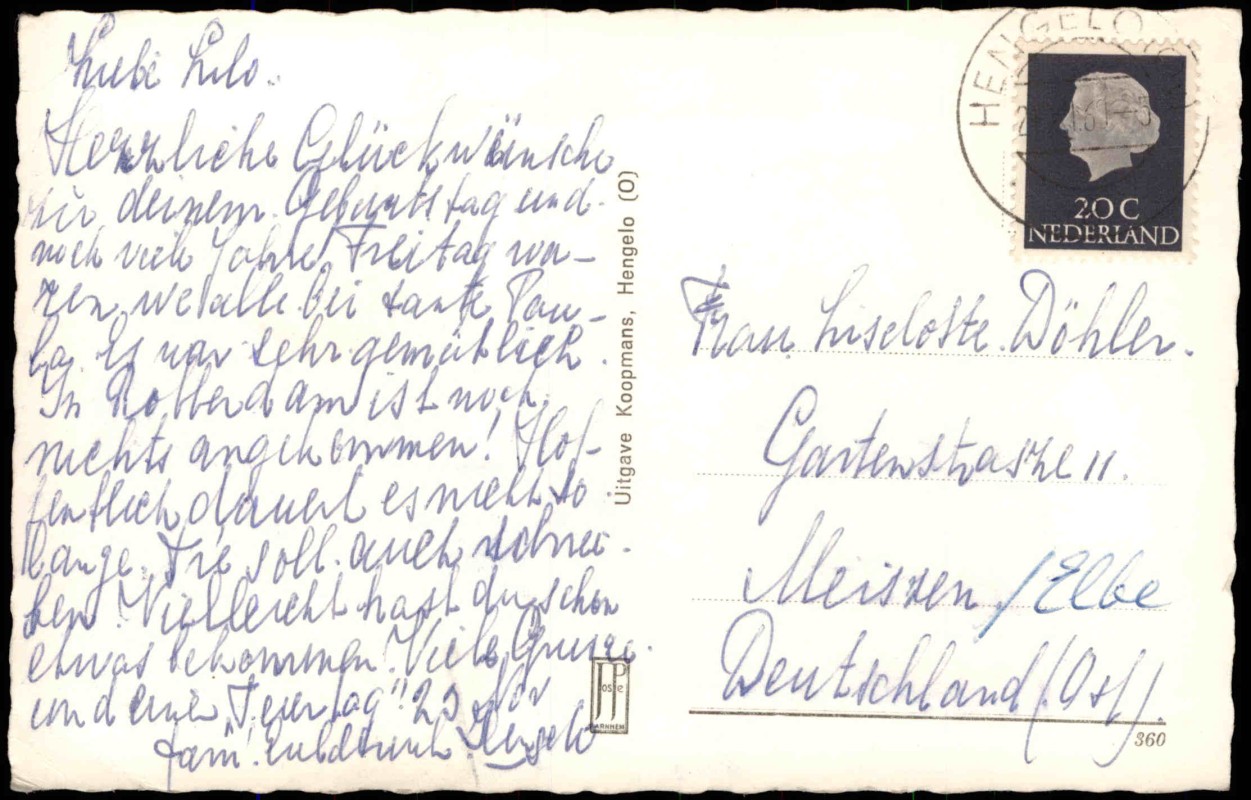 Liebe Lilo.
Herzliche Glückwünsche
zu deinem Geburtstag und
noch viele Jahre! Freitag wa-
ren wir alle bei tante Pau-
la. Es war sehr gemütlich.
In Rotterdam ist noch
nichts angekommen! Hof-
fentlich dauert es nicht so
lange. Sie soll auch schrei-
ben. Vielleicht hast du schon
etwas bekommen! Viele Grüsze
und eine "Feiertag"! 23 Nov
fam. Hengelo
Uitgave Koopmans, Hengelo (O)
JP
oste
ARNHEM
HENGELO
20 C
NEDERLAND
Frau Liselotte Döhler.
Gartenstrasze 11.
Meiszen /Elbe
Deutschland (Ost).
360